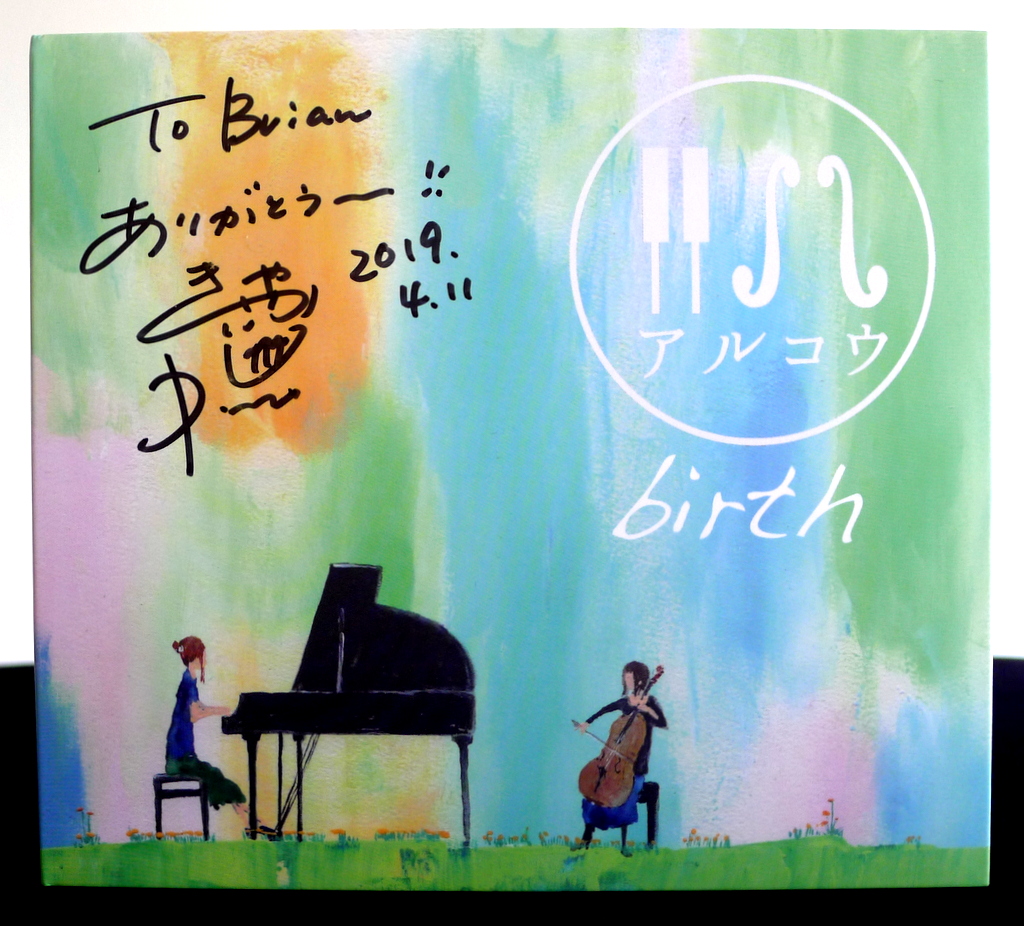 To Brian
ありがとうー!!
2019.
4.11
アルコウ
birth